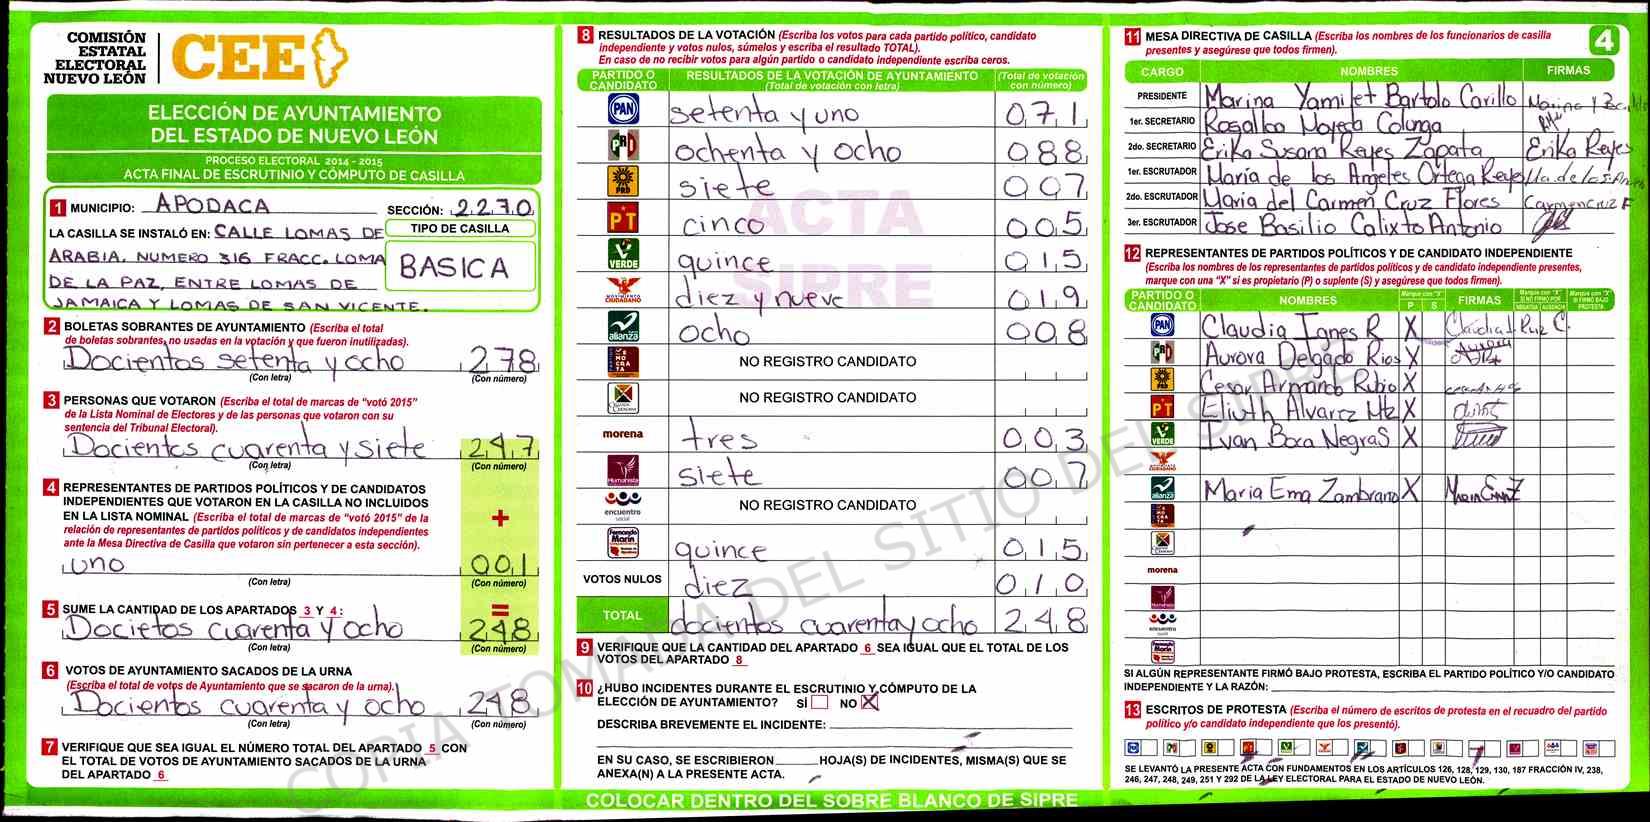 COMISIÓN
ESTATAL
ELECTORAL
NUEVO LEÓN
CEE
ELECCIÓN DE AYUNTAMIENTO
DEL ESTADO DE NUEVO LEÓN
PROCESO ELECTORAL 2014 - 2015
ACTA FINAL DE ESCRUTINIO Y CÓMPUTO DE CASILLA
1 MUNICIPIO: APODACA SECCIÓN: 2270
LA CASILLA SE INSTALÓ EN: CALLE LOMAS DE
ARABIA. NUMERO 316 FRACC. LOMA
DE LA PAZ, ENTRE LOMAS DE
JAMAICA Y LOMAS DE SAN VICENTE.
TIPO DE CASILLA
BASICA
2 BOLETAS SOBRANTES DE AYUNTAMIENTO (Escriba el total
de boletas sobrantes, no usadas en la votación y que fueron inutilizadas).
Docientos setenta y ocho 278
(Con letra) (Con número)
3 PERSONAS QUE VOTARON (Escriba el total de marcas de “votó 2015”
de la Lista Nominal de Electores y de las personas que votaron con su
sentencia del Tribunal Electoral).
Docientos cuarenta y siete 247
(Con letra) (Con número)
4 REPRESENTANTES DE PARTIDOS POLÍTICOS Y DE CANDIDATOS
INDEPENDIENTES QUE VOTARON EN LA CASILLA NO INCLUIDOS
EN LA LISTA NOMINAL (Escriba el total de marcas de “votó 2015” de la
relación de representantes de partidos políticos y de candidatos independientes
ante la Mesa Directiva de Casilla que votaron sin pertenecer a esta sección).
+
uno 001
(Con letra) (Con número)
5 SUME LA CANTIDAD DE LOS APARTADOS 3 Y 4: =
Docietos cuarenta y ocho 248
(Con letra) (Con número)
6 VOTOS DE AYUNTAMIENTO SACADOS DE LA URNA
(Escriba el total de votos de Ayuntamiento que se sacaron de la urna).
Docientos cuarenta y ocho 248
(Con letra) (Con número)
7 VERIFIQUE QUE SEA IGUAL EL NÚMERO TOTAL DEL APARTADO 5 CON
EL TOTAL DE VOTOS DE AYUNTAMIENTO SACADOS DE LA URNA
DEL APARTADO 6
8 RESULTADOS DE LA VOTACIÓN (Escriba los votos para cada partido político, candidato
independiente y votos nulos, súmelos y escriba el resultado TOTAL).
En caso de no recibir votos para algún partido o candidato independiente escriba ceros.
PARTIDO O CANDIDATO RESULTADOS DE LA VOTACIÓN DE AYUNTAMIENTO (Total de votación con letra) (Total de votación con número)
PAN setenta y uno 071
PRI ochenta y ocho 088
PRD siete 007
PT cinco 005
VERDE quince 015
MOVIMIENTO CIUDADANO diez y nueve 019
alianza ocho 008
NO REGISTRO CANDIDATO
NO REGISTRO CANDIDATO
morena tres 003
Humanista siete 007
encuentro social NO REGISTRO CANDIDATO
Fernando Marín quince 015
VOTOS NULOS diez 010
TOTAL docientos cuarenta y ocho 248
ACTA
SIPRE
9 VERIFIQUE QUE LA CANTIDAD DEL APARTADO 6 SEA IGUAL QUE EL TOTAL DE LOS
VOTOS DEL APARTADO 8
10 ¿HUBO INCIDENTES DURANTE EL ESCRUTINIO Y CÓMPUTO DE LA
ELECCIÓN DE AYUNTAMIENTO? SÍ NO X
DESCRIBA BREVEMENTE EL INCIDENTE:
EN SU CASO, SE ESCRIBIERON HOJA(S) DE INCIDENTES, MISMA(S) QUE SE
ANEXA(N) A LA PRESENTE ACTA.
COLOCAR DENTRO DEL SOBRE BLANCO DE SIPRE
11 MESA DIRECTIVA DE CASILLA (Escriba los nombres de los funcionarios de casilla
presentes y asegúrese que todos firmen).
4
CARGO NOMBRES FIRMAS
PRESIDENTE Marina Yamilet Bartolo Carillo
1er. SECRETARIO Rosalba Noyola Colunga
2do. SECRETARIO Erika Susana Reyes Zapata Erika Reyes
1er. ESCRUTADOR María de los Angeles Ortega Reyes Ma. de los Angeles
2do. ESCRUTADOR Maria del Carmen Cruz Flores Carmen Cruz F
3er. ESCRUTADOR Jose Basilio Calixto Antonio
12 REPRESENTANTES DE PARTIDOS POLÍTICOS Y DE CANDIDATO INDEPENDIENTE
(Escriba los nombres de los representantes de partidos políticos y de candidato independiente presentes,
marque con una “X” si es propietario (P) o suplente (S) y asegúrese que todos firmen).
PARTIDO O CANDIDATO NOMBRES Marque con “X” P S FIRMAS Marque con “X” SI NO FIRMÓ POR NEGATIVA AUSENCIA Marque con “X” SI FIRMÓ BAJO PROTESTA
PAN Claudia Ignes R X Claudia I. Ruiz C.
PRI Aurora Delgado Rios X
PRD Cesar Armando Rubio X
PT Eliuth Alvarez Mtz X
VERDE Ivan Boca Negras X
MOVIMIENTO CIUDADANO
alianza Maria Ema Zambrano X
morena
Humanista
encuentro social
SI ALGÚN REPRESENTANTE FIRMÓ BAJO PROTESTA, ESCRIBA EL PARTIDO POLÍTICO Y/O CANDIDATO
INDEPENDIENTE Y LA RAZÓN:
13 ESCRITOS DE PROTESTA (Escriba el número de escritos de protesta en el recuadro del partido
político y/o candidato independiente que los presentó).
SE LEVANTÓ LA PRESENTE ACTA CON FUNDAMENTOS EN LOS ARTÍCULOS 126, 128, 129, 130, 187 FRACCIÓN IV, 238,
246, 247, 248, 249, 251 Y 292 DE LA LEY ELECTORAL PARA EL ESTADO DE NUEVO LEÓN.
COPIA TOMADA DEL SITIO DEL SIPRE